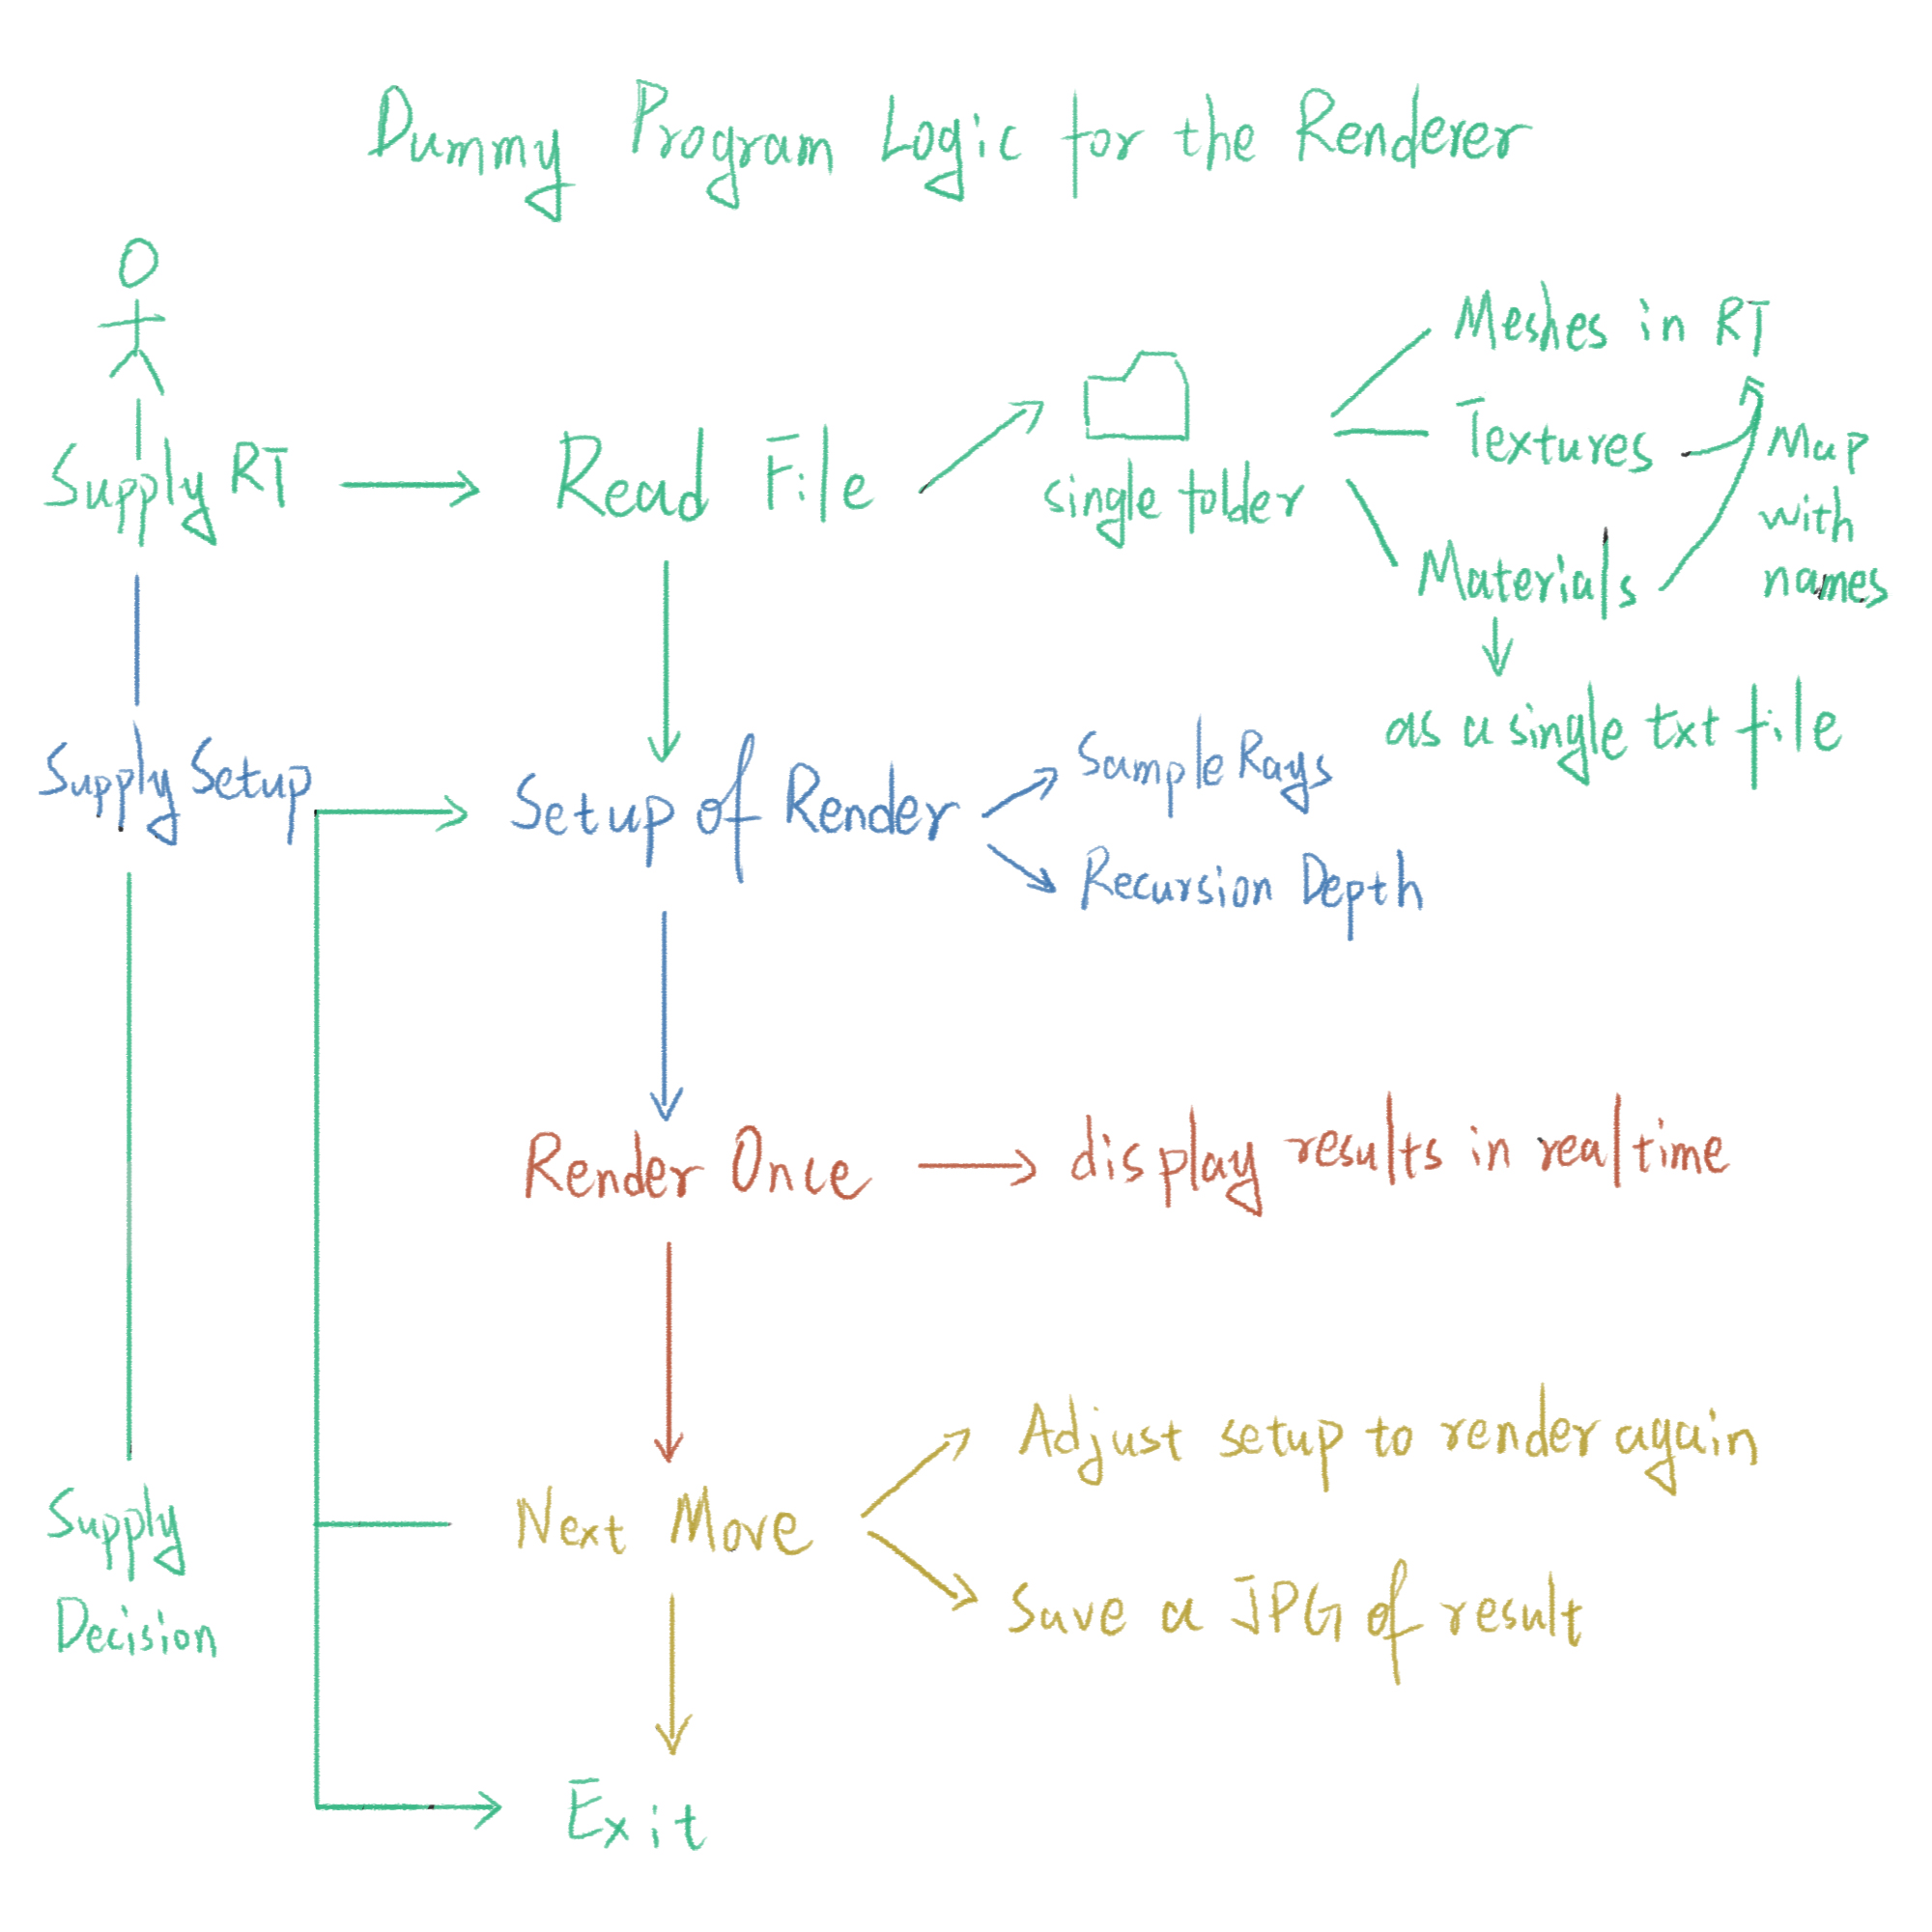 Dummy Program Logic for the Renderer
Supply RT
Read File
single folder
Meshes in RT
Textures
Materials
Map
with
names
as a single txt file
Supply Setup
Setup of Render
Sample Rays
Recursion Depth
Render Once
display results in real time
Next Move
Adjust setup to render again
Save a JPG of result
Supply
Decision
Exit